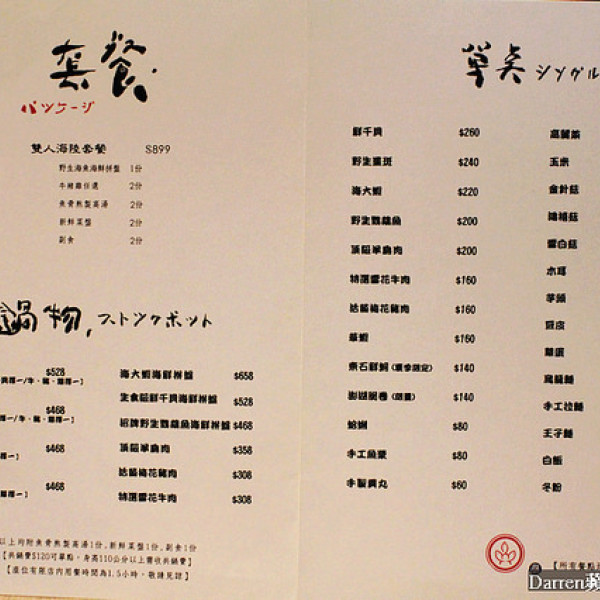 套餐
パッケージ
雙人海陸套餐 $899
野生海魚海鮮拼盤 1份
牛豬雞任選 2份
魚骨熬製高湯 2份
新鮮菜盤 2份
副食 2份
鍋物,ストックポット
$528
海大蝦海鮮拼盤 $658
$468
生食級鮮干貝海鮮拼盤 $528
$468
招牌野生龍膽魚海鮮拼盤 $468
$468
頂級羊肩肉 $358
梅花豬肉 $308
特選雪花牛肉 $308
以上均附魚骨熬製高湯1份,新鮮菜盤1份,副食1份
【共鍋費$120可單點,身高110公分以上需收共鍋費】
【座位有限店內用餐時間為1.5小時,敬請見諒】
單点 シングル
鮮干貝 $260
野生石斑 $240
海大蝦 $220
野生龍膽魚 $200
頂級羊肩肉 $200
特選雪花牛肉 $160
梅花豬肉 $160
草蝦 $160
東石鮮蚵(夏季限定) $140
澎湖小卷(限量) $140
蛤蜊 $80
手工魚漿 $80
手製貢丸 $60
高麗菜
玉米
金針菇
鴻禧菇
雪白菇
木耳
芋頭
豆皮
烏龍麵
手工拉麵
王子麵
白飯
冬粉
【所有餐點
Darren蘋